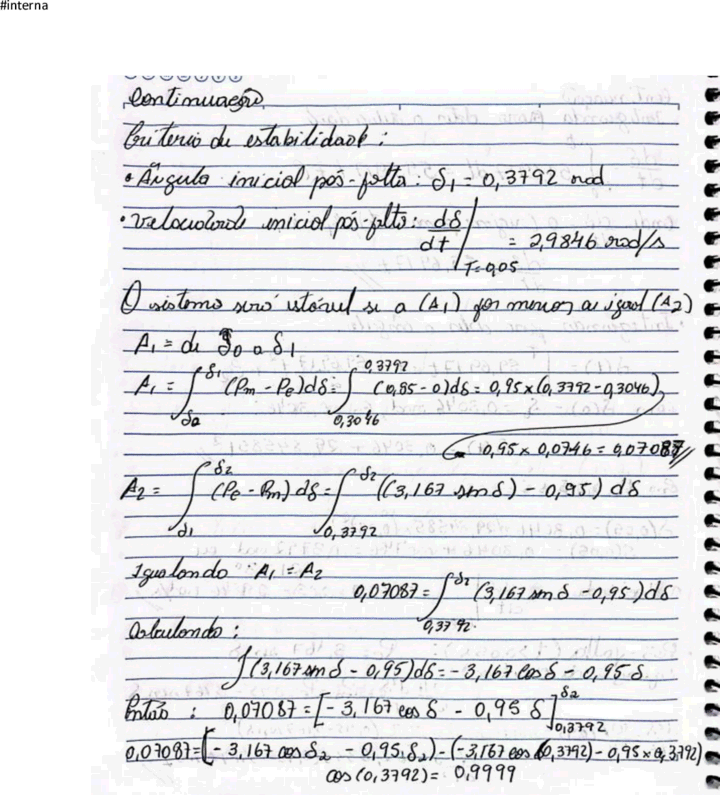 #interna
Continuação
Criterio de estabilidade:
• Ângulo inicial pós-falta: δ1 = 0,3792 rad
• Velocidade inicial pós-falta: dδ/dt | T=0,05 = 2,9846 rad/s
O sistema será estável se a (A1) for menor ou igual (A2)
A1 = de δ0 a δ1
A1 = ∫_{δ0}^{δ1} (Pm - Pe) dδ = ∫_{0,3046}^{0,3792} (0,95 - 0) dδ = 0,95 x (0,3792 - 0,3046)
0,95 x 0,0746 = 0,07087//
A2 = ∫_{δ1}^{δ2} (Pe - Pm) dδ = ∫_{0,3792}^{δ2} ((3,167 sen δ) - 0,95) dδ
Igualando A1 = A2
0,07087 = ∫_{0,3792}^{δ2} (3,167 sen δ - 0,95) dδ
Calculando:
∫(3,167 sen δ - 0,95) dδ = - 3,167 cos δ - 0,95 δ
Então: 0,07087 = [- 3,167 cos δ - 0,95 δ]_{0,3792}^{δ2}
0,07087 = [- 3,167 cos δ2 - 0,95.δ2) - (-3,167 cos (0,3792) - 0,95 x 0,3792)
cos (0,3792) = 0,9999